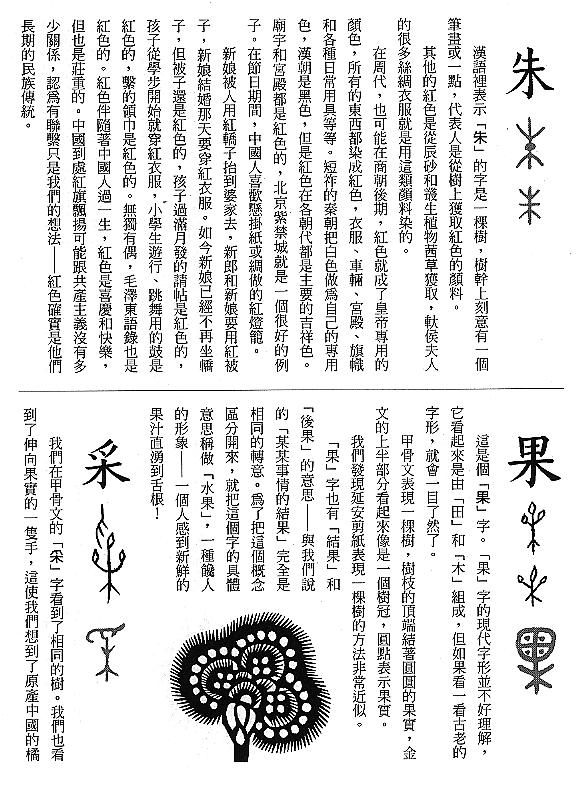 朱
漢語裡表示「朱」的字是一棵樹，樹幹上刻意有一個
筆畫或一點，代表人是從樹上獲取紅色的顏料。
其他的紅色是從辰砂和叢生植物茜草獲取，軑侯夫人
的很多絲綢衣服就是用這類顏料染的。
在周代，也可能在商朝後期，紅色就成了皇帝專用的
顏色，所有的東西都染成紅色，衣服、車輛、宮殿、旗幟
和各種日常用具等等。短祚的秦朝把白色做為自己的專用
色，漢朝是黑色，但是紅色在各朝代都是主要的吉祥色。
廟宇和宮殿都是紅色的，北京紫禁城就是一個很好的例
子。在節日期間，中國人喜歡懸掛紙或綢做的紅燈籠。
新娘被人用紅轎子抬到婆家去，新郎和新娘要用紅被
子，新娘結婚那天要穿紅衣服。如今新娘已經不再坐轎
子，但被子還是紅色的，孩子過滿月發的請帖是紅色的，
孩子從學步開始就穿紅衣服，小學生遊行、跳舞用的鼓是
紅色的，繫的領巾是紅色的。無獨有偶，毛澤東語錄也是
紅色的。紅色伴隨著中國人過一生，紅色是喜慶和快樂，
但也是莊重的。中國到處紅旗飄揚可能跟共產主義沒有多
少關係，認為有聯繫只是我們的想法——紅色確實是他們
長期的民族傳統。
果
這是個「果」字。「果」字的現代字形並不好理解，
它看起來是由「田」和「木」組成，但如果看一看古老的
字形，就會一目了然了。
甲骨文表現一棵樹，樹枝的頂端結著圓圓的果實，金
文的上半部分看起來像是一個樹冠，圓點表示果實。
我們發現延安剪紙表現一棵樹的方法非常近似。
「果」字也有「結果」和
「後果」的意思——與我們說
的「某某事情的結果」完全是
相同的轉意。為了把這個概念
區分開來，就把這個字的具體
意思稱做「水果」，一種饞人
的形象——一個人感到新鮮的
果汁直湧到舌根！
采
我們在甲骨文的「采」字看到了相同的樹。我們也看
到了伸向果實的一隻手，這使我們想到了原產中國的橘